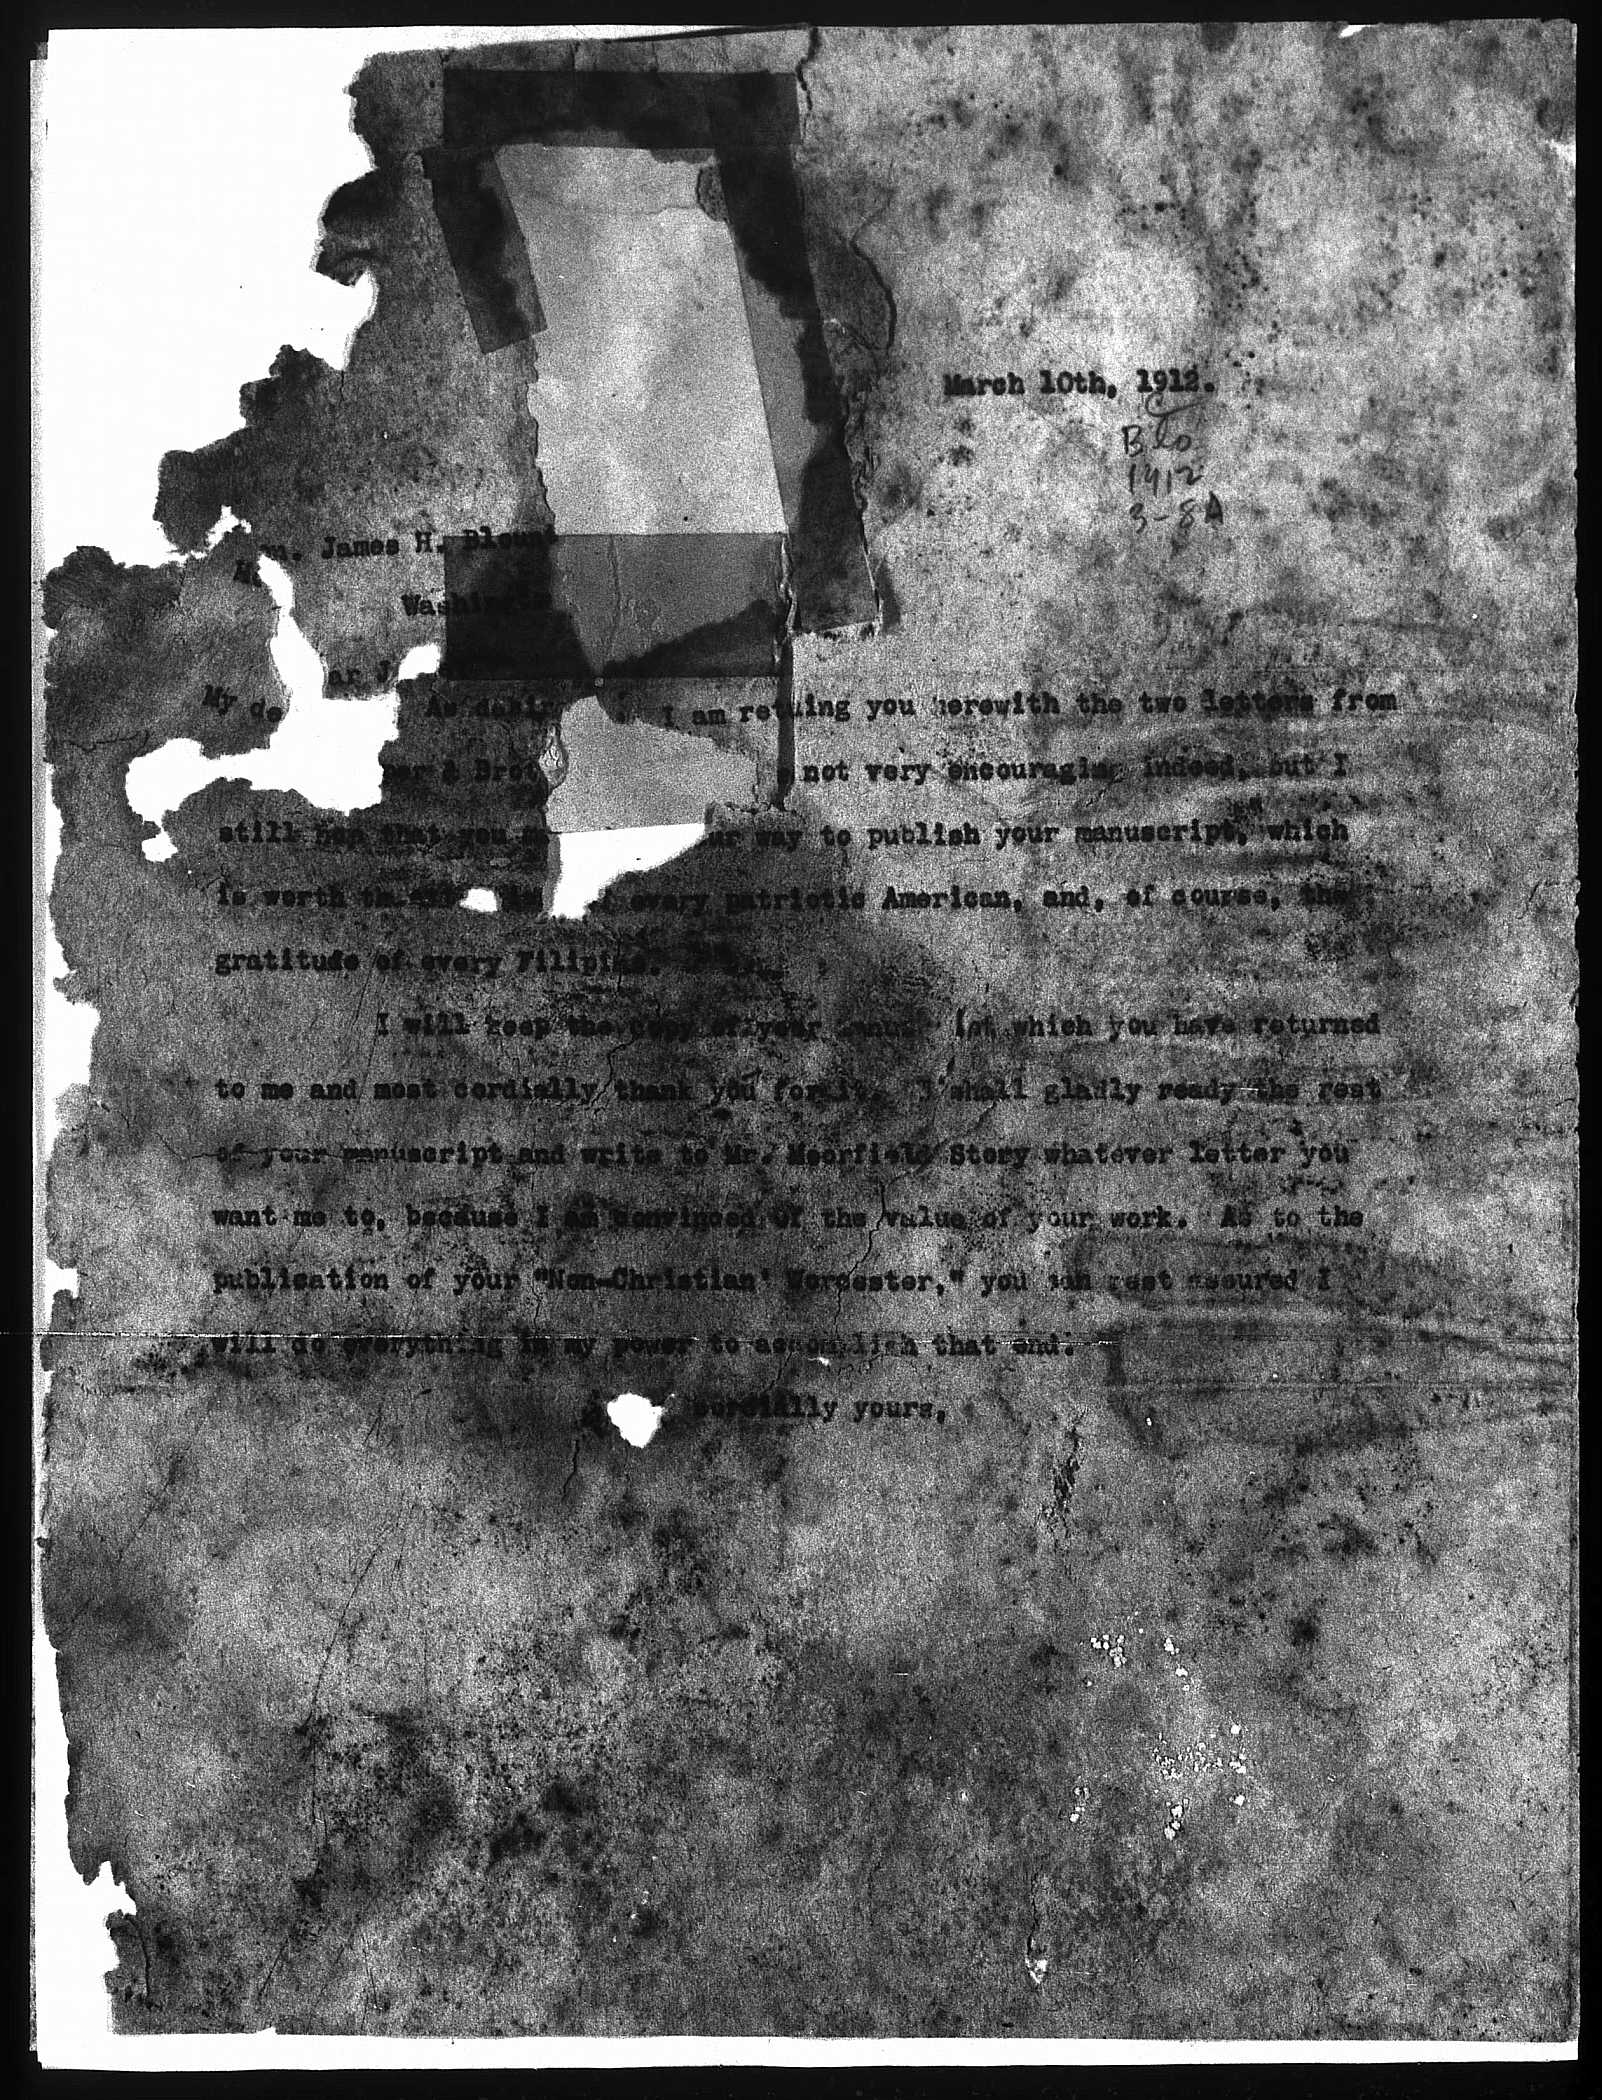 March 10th, 1912.
Blo
1912
3-8A
James H. Blount
My de ar J
I am retuing you herewith the two letters from
& not very encouraging indeed, but I
still that you way to publish your manuscript, which
is worth every patriotic American, and, of course, the
gratitude of every Filipino.
I will keep the copy of your which you have returned
to me and most cordially thank you for it. I shall gladly ready the rest
of your manuscript and write to Mr. Moorfield Story whatever letter you
want me to, because I am convinced of the value of your work. As to the
publication of your "Non-Christian' Worcester," you can rest assured I
will do everything in my power to accomplish that end.
cordially yours,